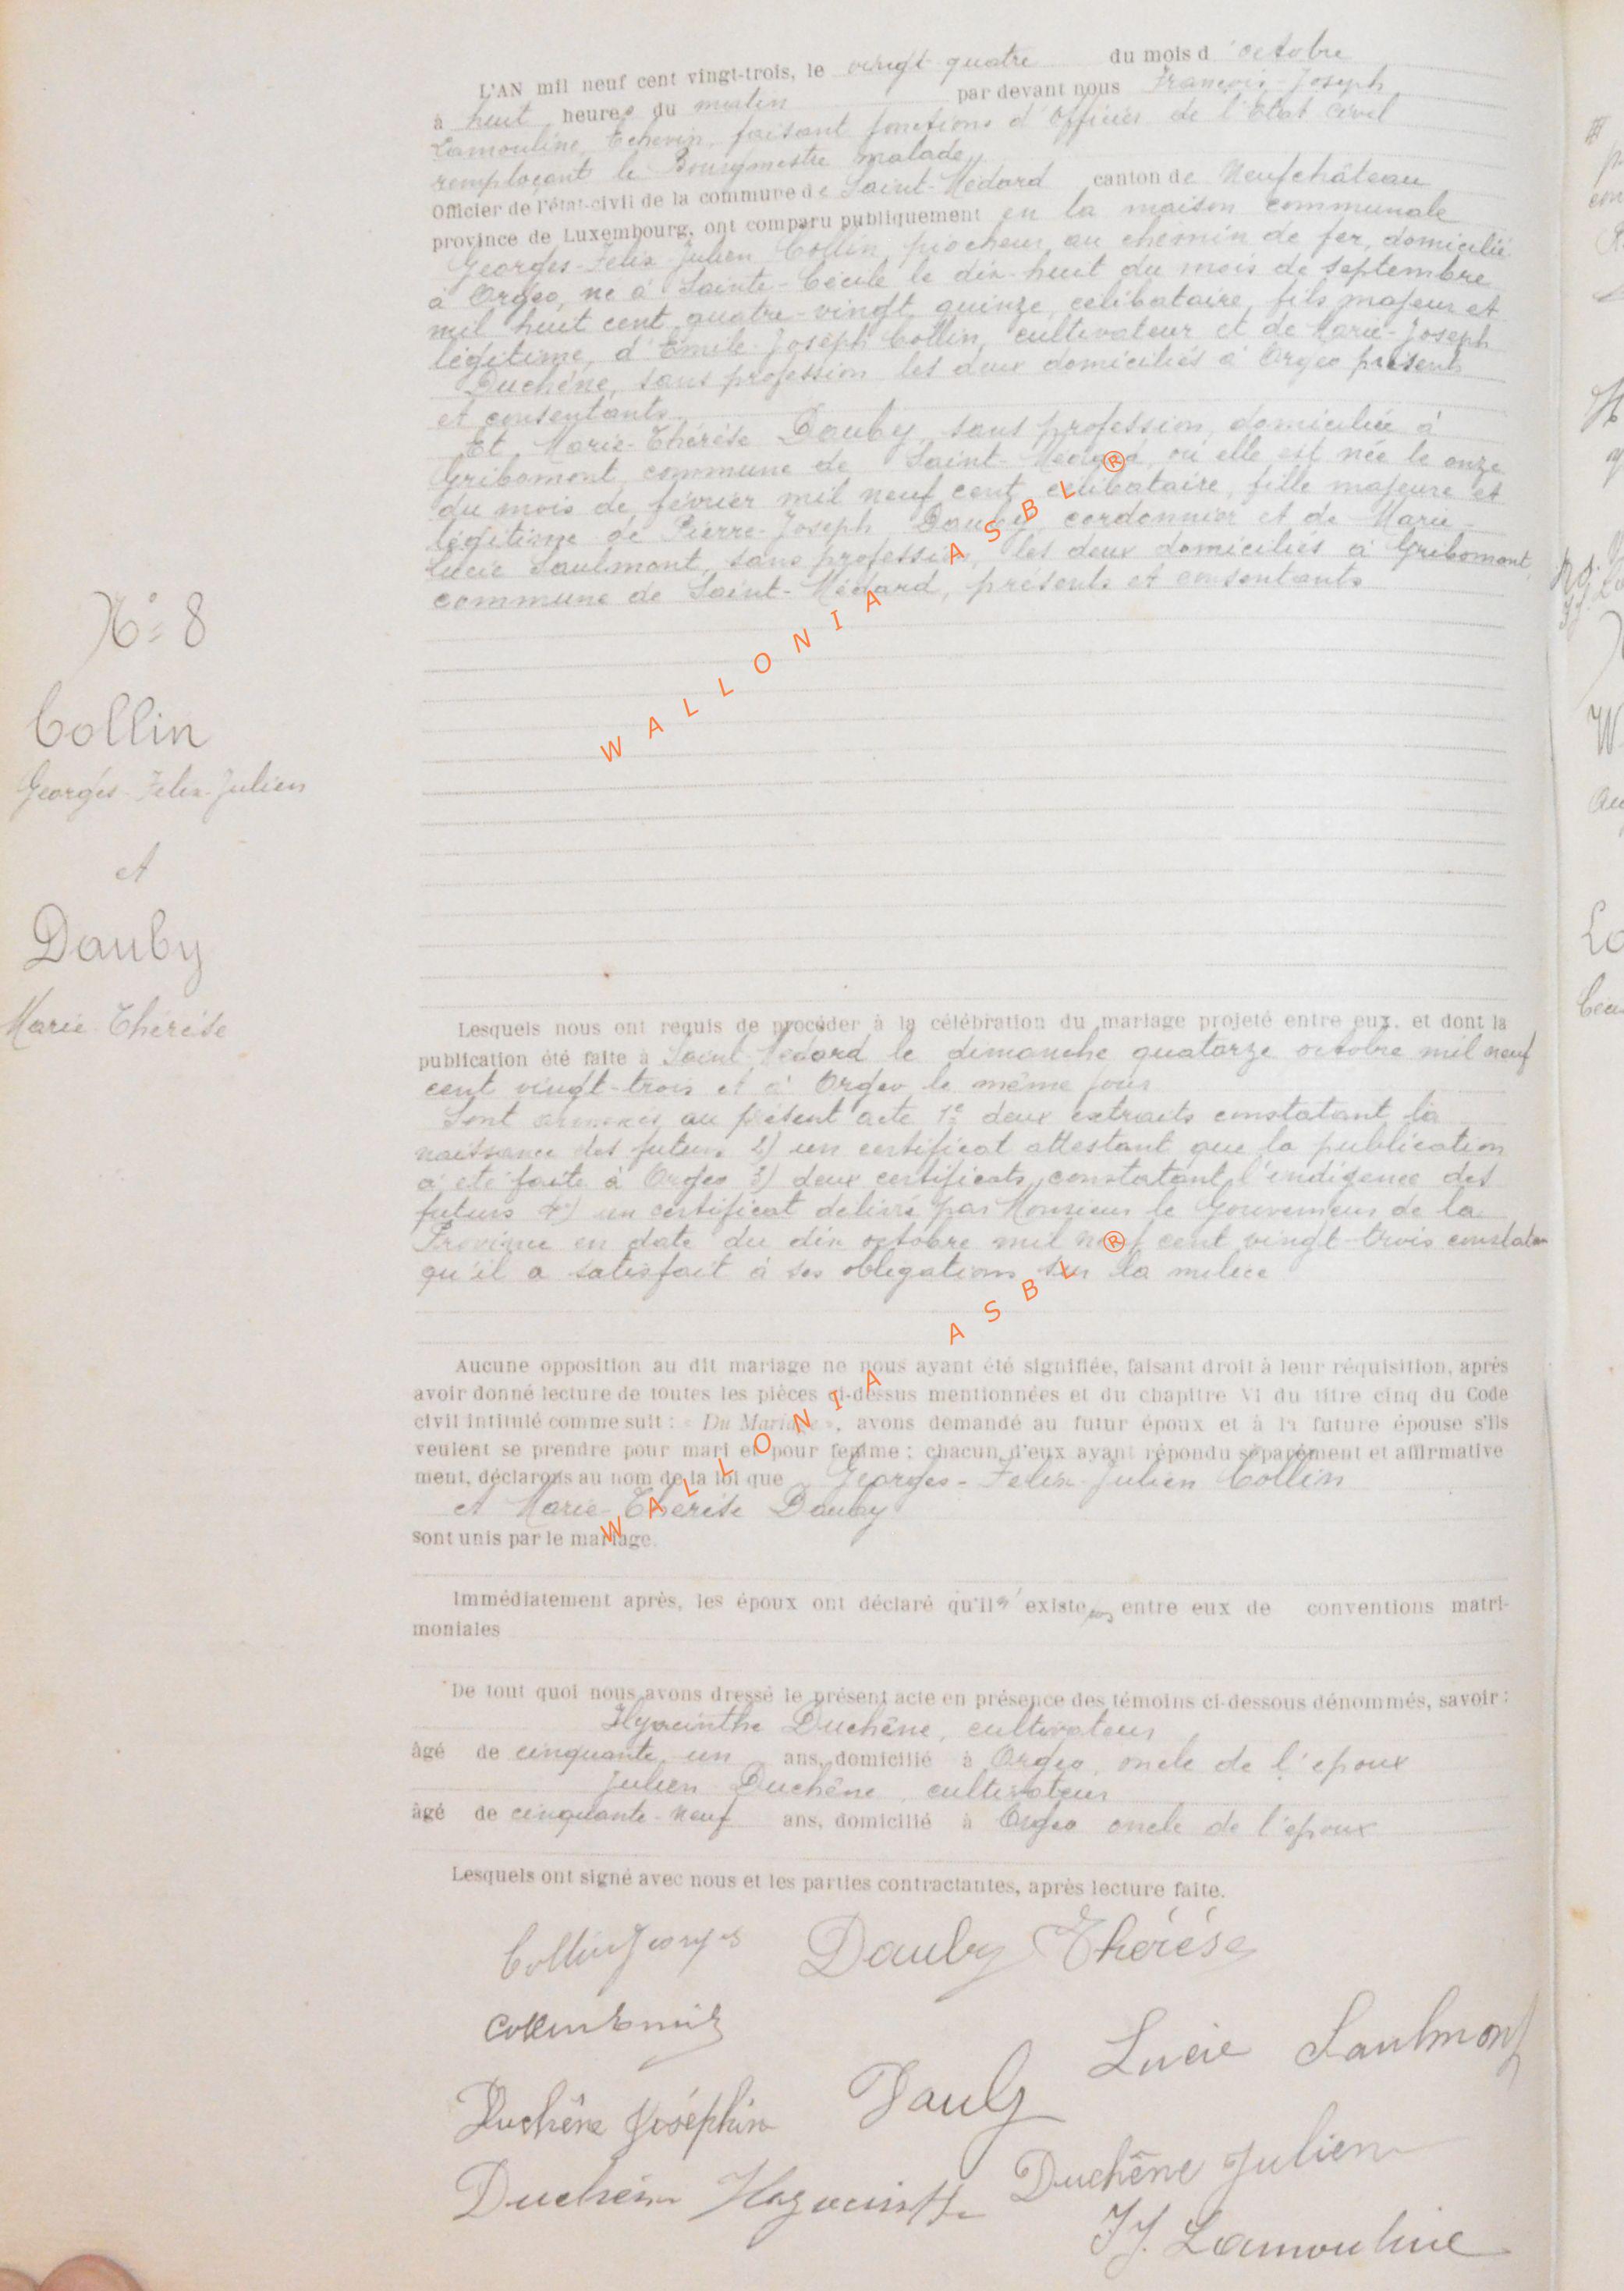 L'AN mil neuf cent vingt-trois, le vingt-quatre du mois d'octobre
à huit heures du matin par devant nous François-Joseph
Lamouline, Echevin, faisant fonctions d'Officier de l'Etat Civil
remplaçant le Bourgmestre malade,
Officier de l'état-civil de la commune de Saint-Médard canton de Neufchâteau
province de Luxembourg, ont comparu publiquement en la maison communale
Georges-Felix-Julien Collin, piocheur au chemin de fer, domicilié
à Orgeo, né à Sainte-Cécile le dix-huit du mois de septembre
mil huit cent quatre-vingt quinze, célibataire, fils majeur et
légitime, d'Emile-Joseph Collin, cultivateur et de Marie-Joseph
Duchêne, sans profession les deux domiciliés à Orgeo présents
et consentants.
Et Marie-Thérèse Dauby, sans profession, domiciliée à
Gribomont, commune de Saint-Médard, où elle est née le onze
du mois de février mil neuf cent, célibataire, fille majeure et
légitime de Pierre-Joseph Dauby, cordonnier et de Marie-
Lucie Saulmont, sans profession, les deux domiciliés à Gribomont,
commune de Saint-Médard, présents et consentants
N° 8
Collin
Georges-Felix-Julien
et
Dauby
Marie-Thérèse
Lesquels nous ont requis de procéder à la célébration du mariage projeté entre eux, et dont la
publication été faite à Saint-Médard le dimanche quatorze octobre mil neuf
cent vingt-trois et à Orgeo le même jour
Sont annexés au présent acte 1° deux extraits constatant la
naissance des futurs 2) un certificat attestant que la publication
a été faite à Orgeo 3) deux certificats constatant l'indigence des
futurs 4°) un certificat délivré par Monsieur le Gouverneur de la
Province en date du dix octobre mil neuf cent vingt-trois constatant
qu'il a satisfait à ses obligations sur la milice
Aucune opposition au dit mariage ne nous ayant été signifiée, faisant droit à leur réquisition, après
avoir donné lecture de toutes les pièces ci-dessus mentionnées et du chapitre VI du titre cinq du Code
civil intitulé comme suit : « Du Mariage », avons demandé au futur époux et à la future épouse s'ils
veulent se prendre pour mari et pour femme ; chacun d'eux ayant répondu séparément et affirmative
ment, déclarons au nom de la loi que Georges-Felix-Julien Collin
et Marie-Thérèse Dauby
sont unis par le mariage.
Immédiatement après, les époux ont déclaré qu'il n'existe pas entre eux de conventions matri-
moniales
De tout quoi nous avons dressé le présent acte en présence des témoins ci-dessous dénommés, savoir :
Hyacinthe Duchêne, cultivateur
âgé de cinquante un ans, domicilié à Orgeo, oncle de l'époux
Julien Duchêne, cultivateur
âgé de cinquante-neuf ans, domicilié à Orgeo oncle de l'époux
Lesquels ont signé avec nous et les parties contractantes, après lecture faite.
Collin Georges Dauby Thérèse
Collin Emile
Lucie Saulmont
Duchêne Joséphine Dauby
Duchêne Hyacinthe Duchêne Julien
F J. Lamouline
WALLONIA ASBL ®
WALLONIA ASBL ®